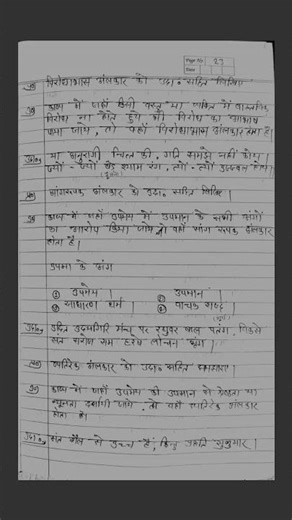 Page No. 27
Date
प्र० विरोधाभास अलंकार को उदा० सहित लिखिए
उ० काव्य में जहाँ किसी वस्तु या व्यक्ति में वास्तविक
विरोध ना होते हुये भी विरोध का आभास
पाया जाय, तो वहाँ विरोधाभास अलंकार होता है।
उदा० या अनुरागी चित्त की, गति समझे नहीं कोय।
ज्यों - ज्यों बूड़े श्याम रंग, त्यों - त्यों उज्ज्वल होय।
प्र० सांगरूपक अलंकार को उदा० सहित लिखिए।
उ० काव्य में जहाँ उपमेय में उपमान के सभी अंगों
का आरोप किया जाय तो वहाँ सांग रूपक अलंकार
होता है।
उपमा के अंग
① उपमेय ② उपमान
③ साधारण धर्म ④ वाचक शब्द
उदा० उदित उदयगिरि मंच पर रघुवर बाल पतंग, विकसे
संत सरोज सब हरषे लोचन भृंग।
प्र० व्यतिरेक अलंकार को उदा० सहित
उ० काव्य में जहाँ उपमेय को उपमान से श्रेष्ठता या
न्यूनता दर्शायी जाये, तो वहाँ व्यतिरेक अलंकार
होता है।
उदा० संत शैल से उच्च हैं, किन्तु प्रकृति सुकुमार।